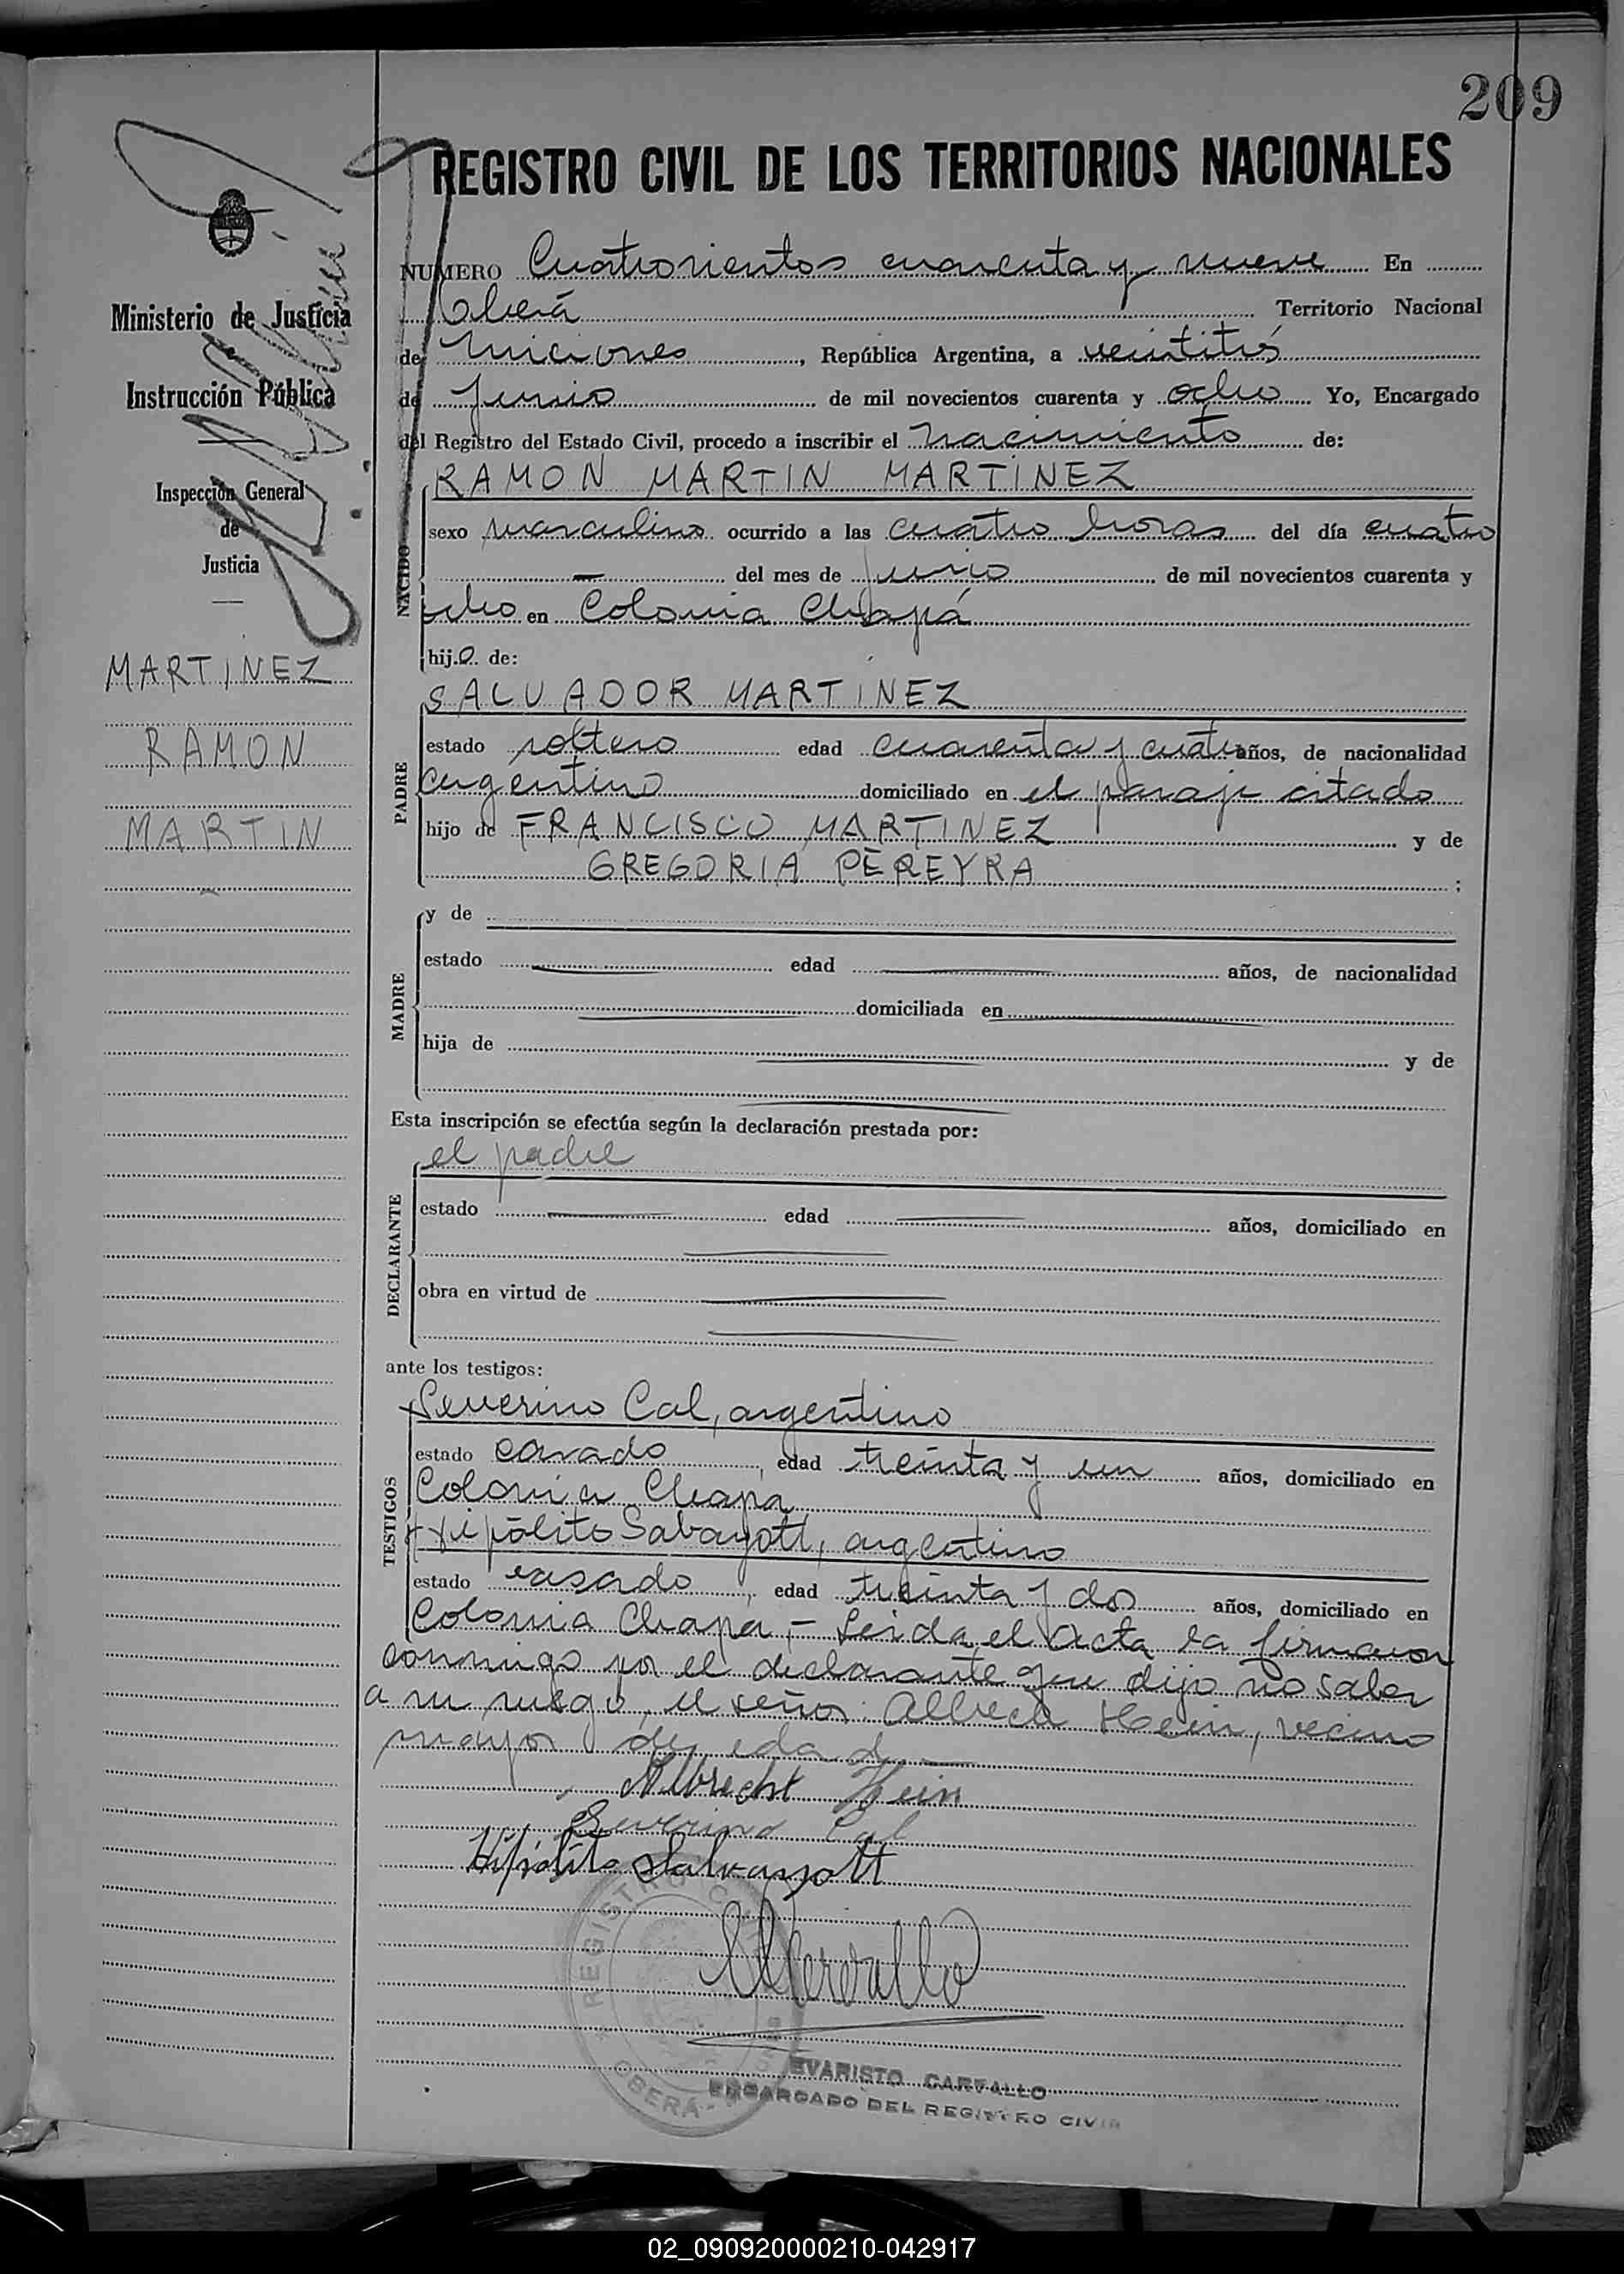 209
REGISTRO CIVIL DE LOS TERRITORIOS NACIONALES
NUMERO Cuatrocientos cuarenta y nueve En
Oberá Territorio Nacional
de Misiones, República Argentina, a veintitrés
de junio de mil novecientos cuarenta y ocho Yo, Encargado
del Registro del Estado Civil, procedo a inscribir el nacimiento de:
RAMON MARTIN MARTINEZ
NACIDO
sexo masculino ocurrido a las cuatro horas del día cuatro
— del mes de junio de mil novecientos cuarenta y
ocho en Colonia Chapá
hijo de:
SALVADOR MARTINEZ
PADRE
estado soltero edad cuarenta y cuatro años, de nacionalidad
argentino domiciliado en el paraje citado
hijo de FRANCISCO MARTINEZ y de
GREGORIA PEREYRA ;
MADRE
y de
estado edad años, de nacionalidad
domiciliada en
hija de y de
Esta inscripción se efectúa según la declaración prestada por:
el padre
DECLARANTE
estado edad años, domiciliado en
obra en virtud de
ante los testigos:
Severino Cal, argentino
TESTIGOS
estado casado, edad treinta y un años, domiciliado en
Colonia Chapa
Hipólito Sabayott, argentino
estado casado, edad treinta y dos años, domiciliado en
Colonia Chapa,- Leida el Acta la firmaron
conmigo por el declarante que dijo no saber
a su ruego, el señor: Hein, vecino
mayor de edad.—
Albrecht Hein
Severino Cal
Hipólito
REGISTRO CIVIL
OBERÁ
EVARISTO CARVALLO
ENCARGADO DEL REGISTRO CIVIL
Ministerio de Justicia
e
Instrucción Pública
Inspección General
de
Justicia
MARTINEZ
RAMON
MARTIN
02_090920000210-042917